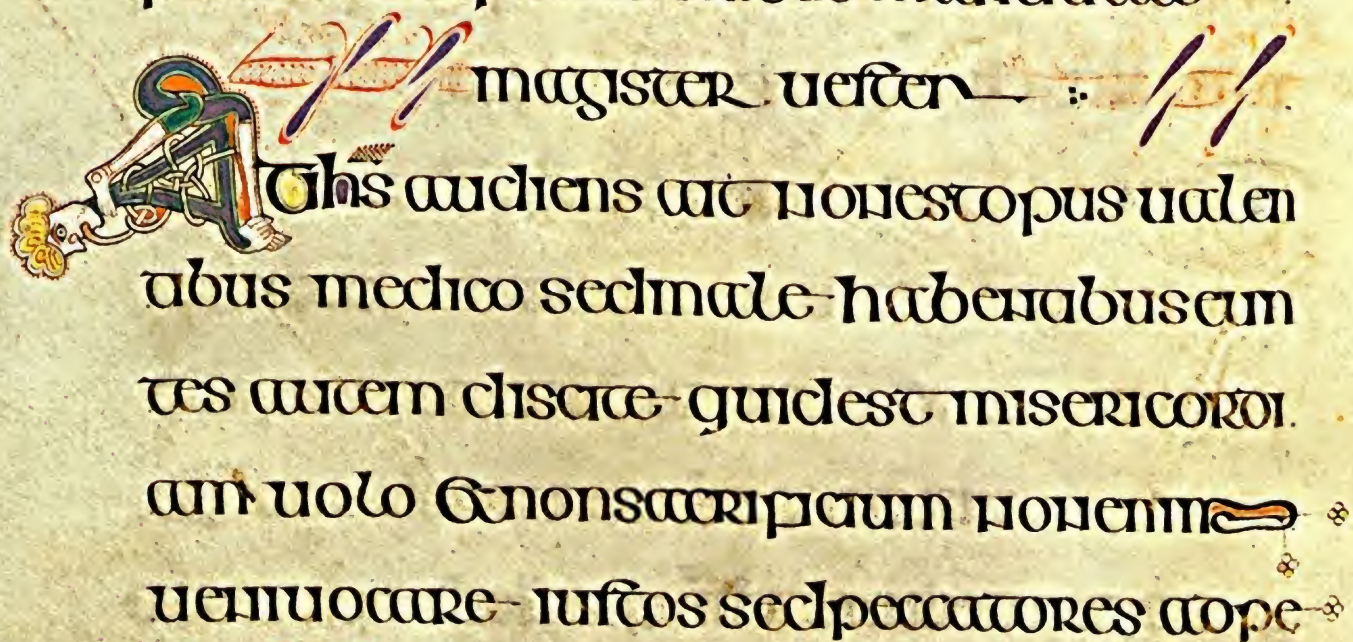 magister uester
At ihs audiens ait non est opus ualen
tibus medico sed male habentibus eun
tes autem discite quid est misericordi
am uolo & non sacrificium non enim
ueni uocare iustos sed peccatores ad pe